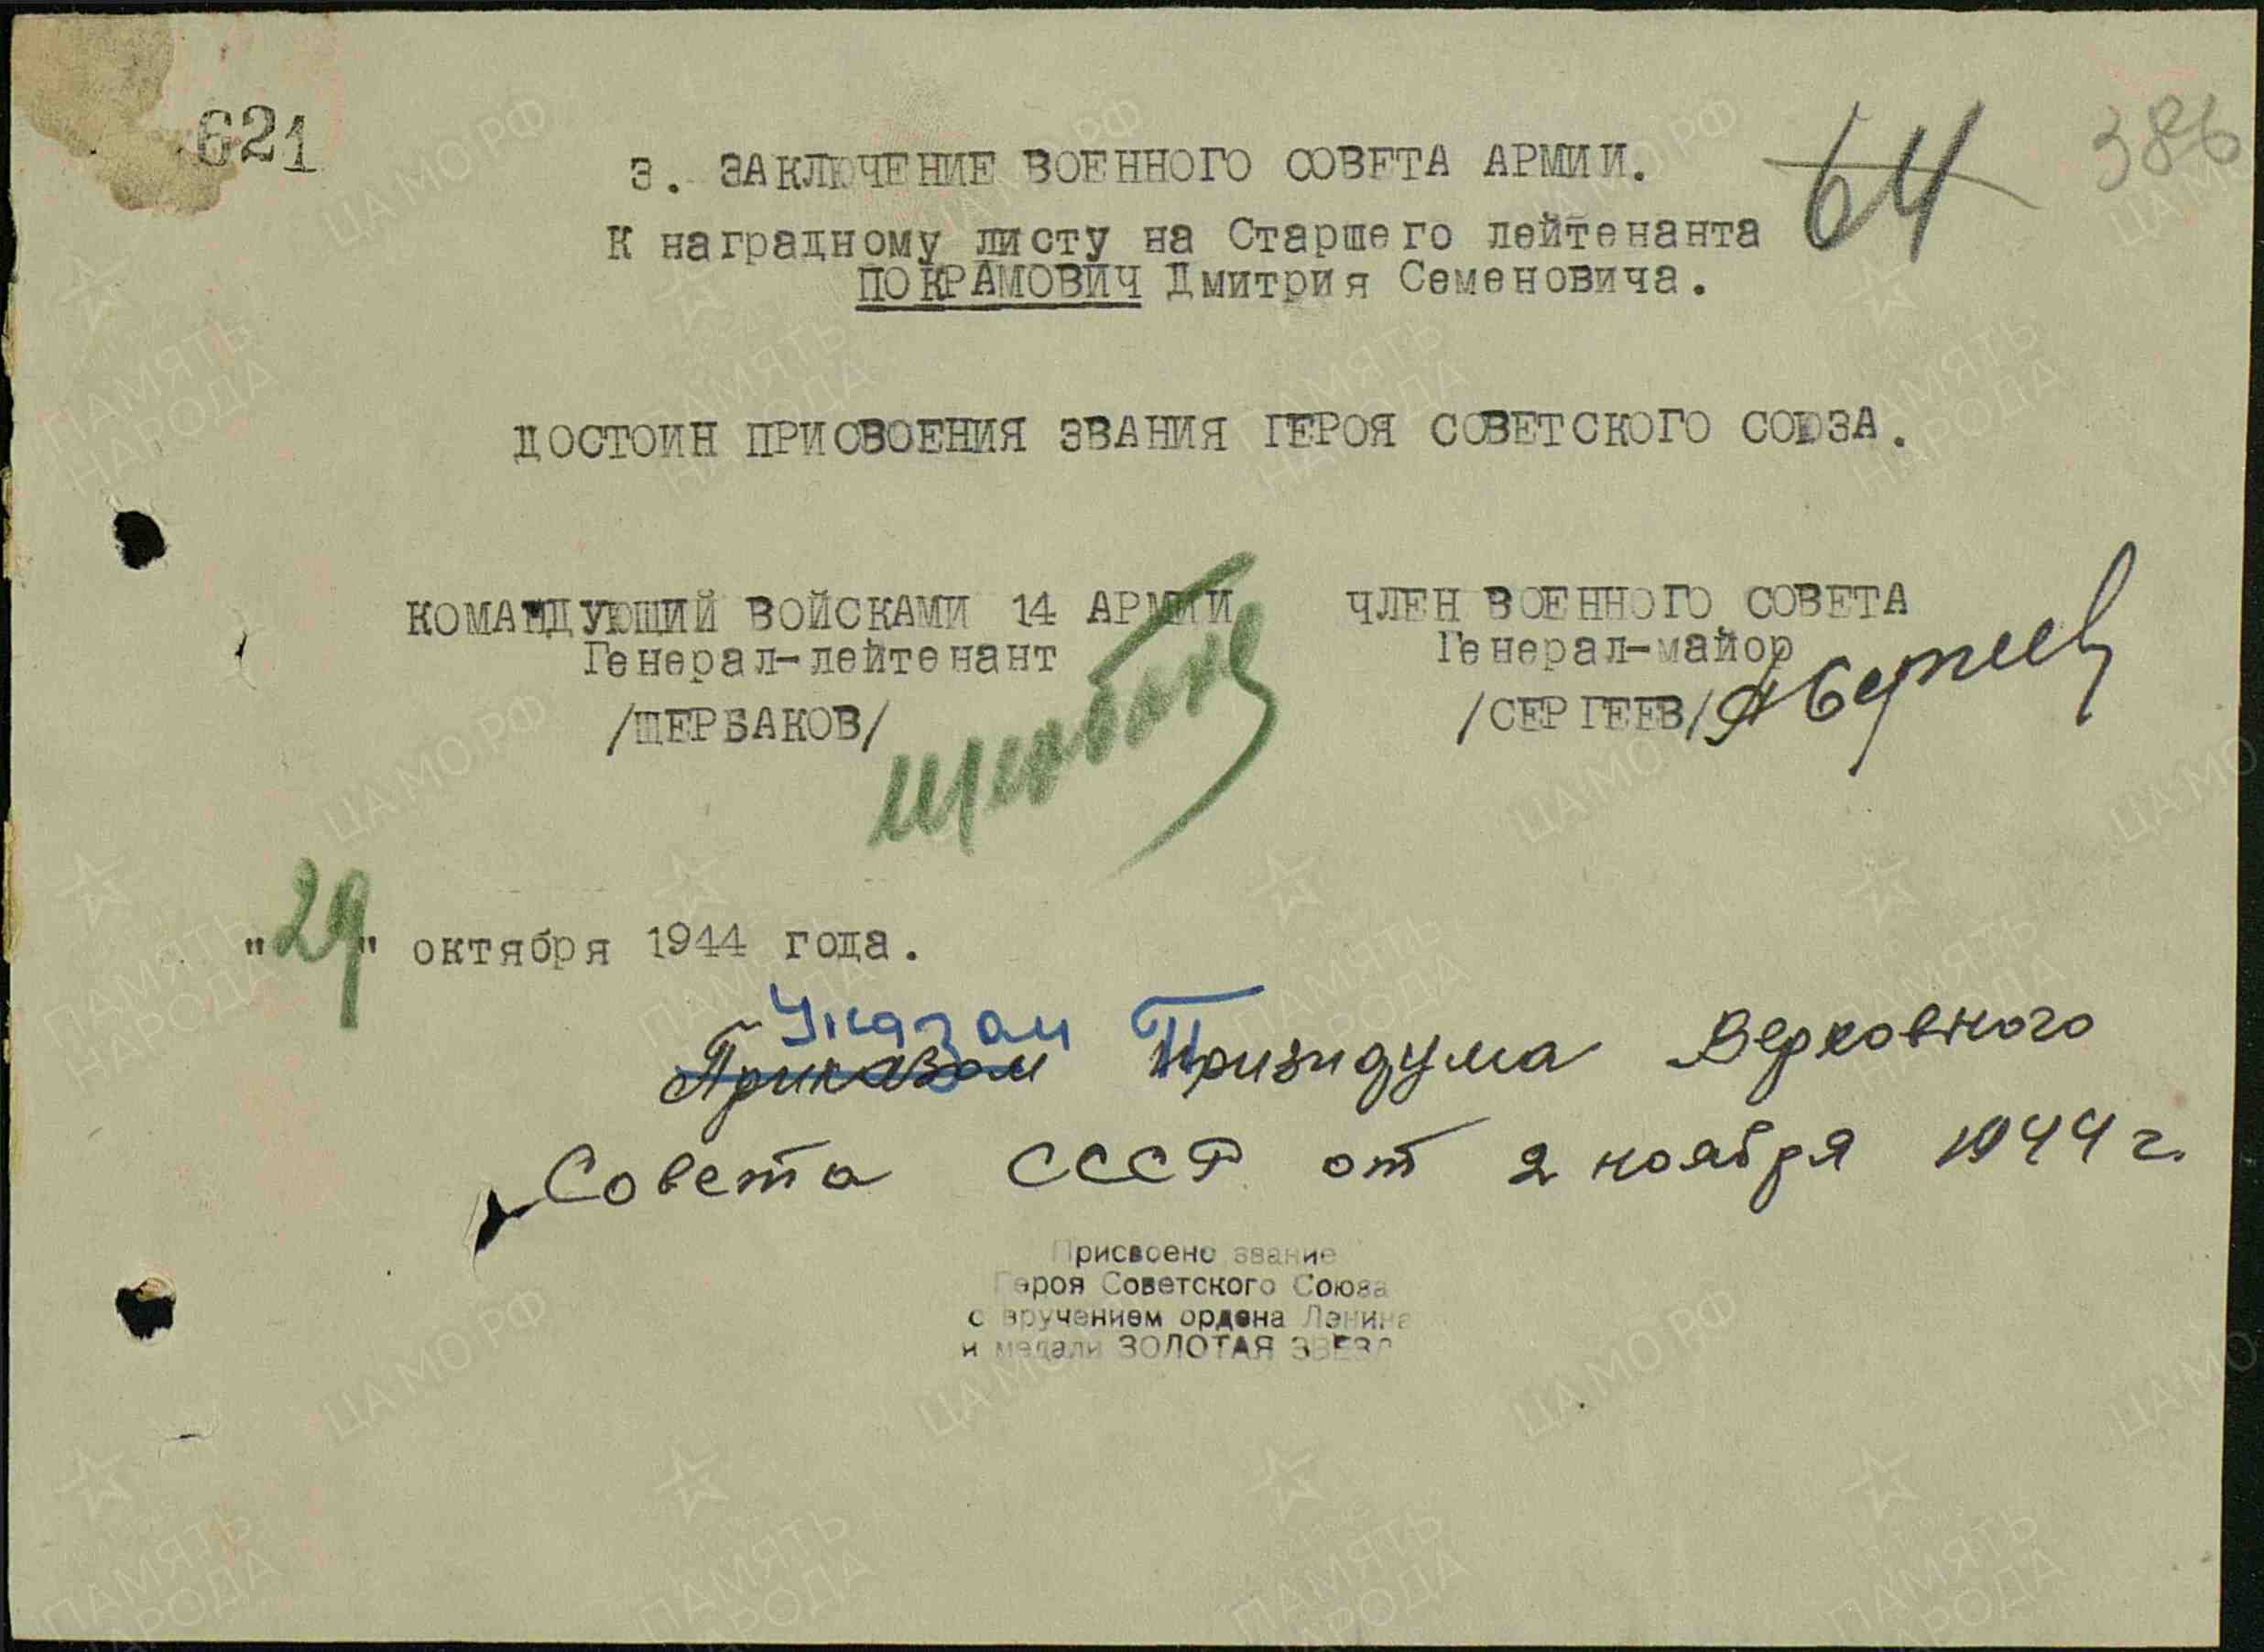 621
64
386
3. ЗАКЛЮЧЕНИЕ ВОЕННОГО СОВЕТА АРМИИ.
К наградному листу на Старшего лейтенанта
ПОКРАМОВИЧ Дмитрия Семеновича.
ДОСТОИН ПРИСВОЕНИЯ ЗВАНИЯ ГЕРОЯ СОВЕТСКОГО СОЮЗА.
КОМАНДУЮЩИЙ ВОЙСКАМИ 14 АРМИИ
Генерал-лейтенант
/ЩЕРБАКОВ/
ЧЛЕН ВОЕННОГО СОВЕТА
Генерал-майор
/СЕРГЕЕВ/
"29" октября 1944 года.
Указом
Приказом Призидума Верховного
Совета СССР от 2 ноября 1944 г.
Присвоено звание
Героя Советского Союза
с вручением ордена Ленина
и медали ЗОЛОТАЯ ЗВЕЗД
ЦА МО РФ
ПАМЯТЬ НАРОДА